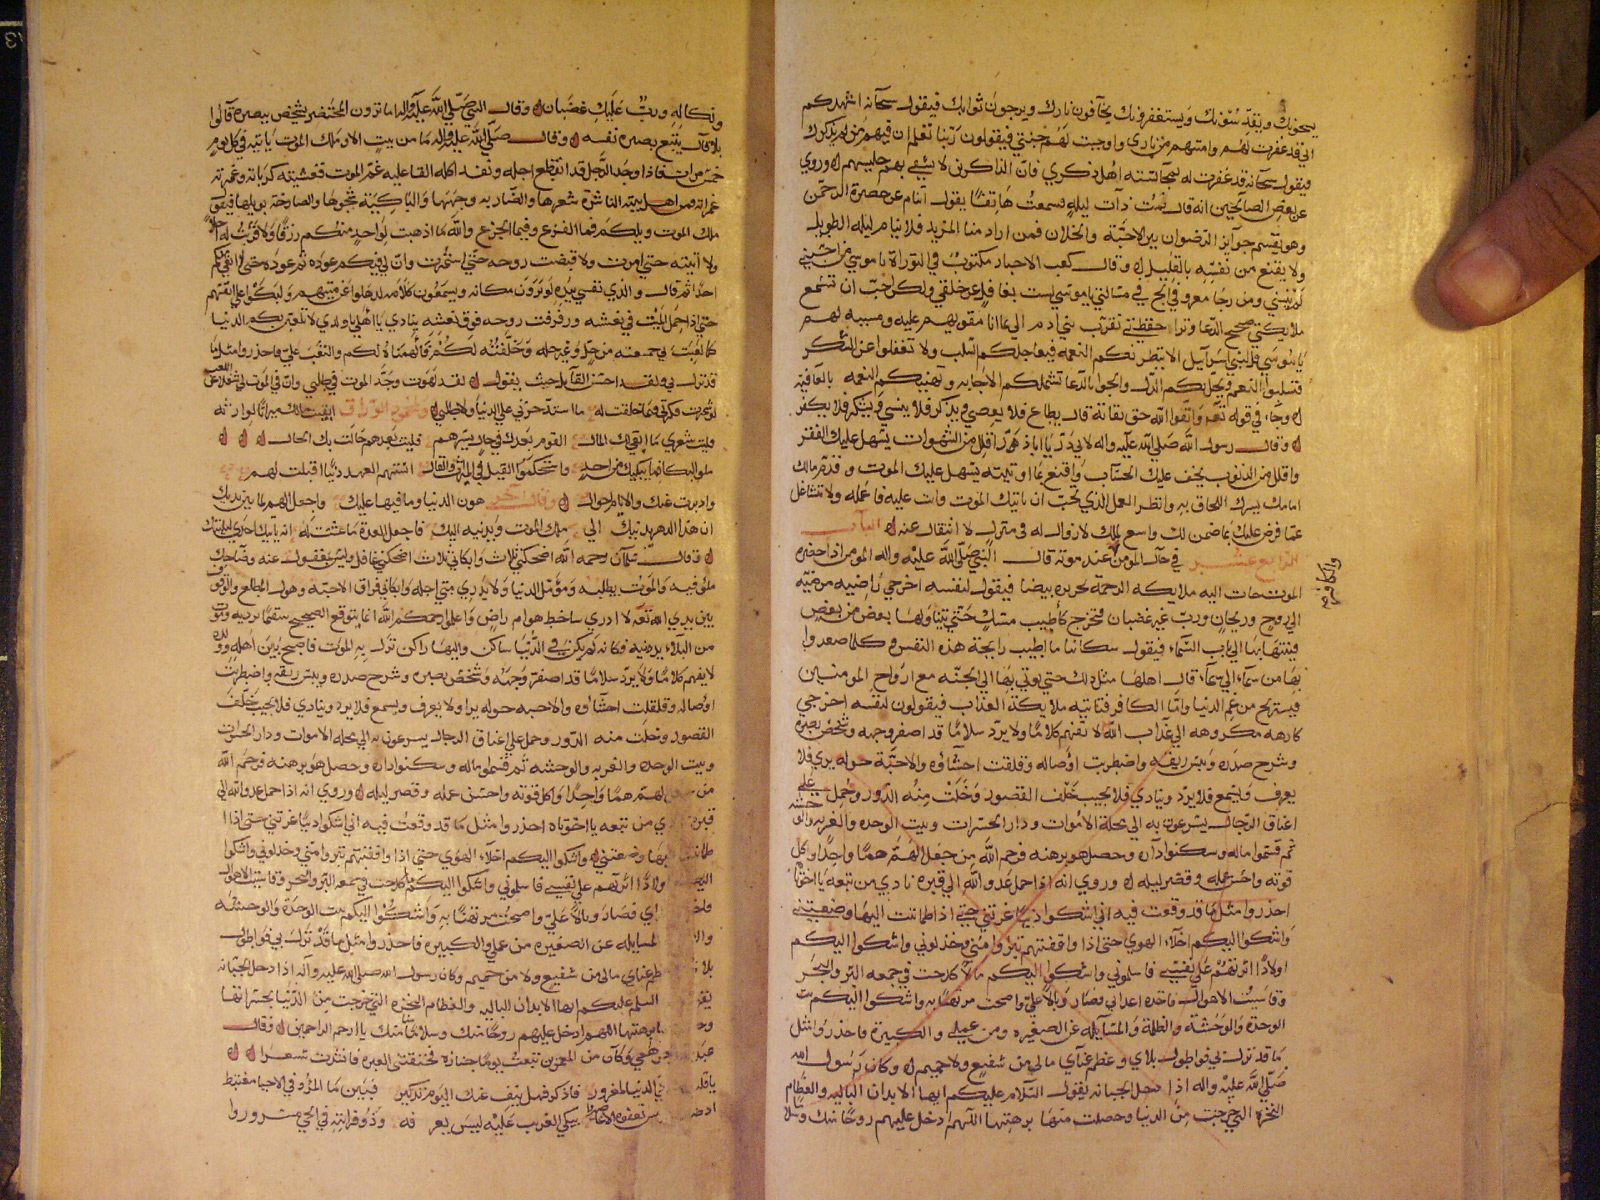 يحبونك ويقدسونك ويستغفرونك يخافون نارك ويرجون ثوابك فيقول سبحانه اشهدكم
اني قد غفرت لهم وامنتهم من ناري واوجبت لهم جنتي فيقولون ربنا تعلم ان فيهم من لم يذكرك
فيقول سبحانه قد غفرت له بمجالسته اهل ذكري فان الذاكرين لا يشقى بهم جليسهم وروي
عن بعض الصالحين انه قال نمت ذات ليلة فسمعت هاتفا يقول اتنام عن حضرة الرحمن
وهو يقسم جوائز الرضوان بين الاحبة والخلان فمن اراد منا المزيد فلا ينام ليله الطويل
ولا يقنع من نفسه بالقليل وقال كعب الاحبار مكتوب في التوراة يا موسى من احبني
لم ينسني ومن رجا معروفي الح في مسالتي يا موسى لست بغافل عن خلقي ولكن احب ان تسمع
ملايكتي ضجيج الدعا وترا حفظتي تقرب بني ادم الي بما انا مقويهم عليه ومسببه لهم
يا موسى قل لبني اسرايل لا تبطرنكم النعمه فيعاجلكم السلب ولا تغفلوا عن الشكر
الذل والحوا بالدعا تشملكم الاجابه وتهنيكم النعمه بالعافية
وجاء في قوله تعه واتقوا الله حق تقاته قال يطاع فلا يعصى ويذكر فلا ينسى ويشكر فلا يكفر
وقال رسول الله صلى الله عليه واله لابي ذر يا اباذر اقلل من الشهوات يسهل عليك الفقر
واقلل من الذنوب يخف عليك الحساب واقنع بما اوتيته يسهل عليك الموت وقدم مالك
امامك يسرك اللحاق به وانظر العمل الذي تحب ان ياتيك الموت وانت عليه فاعمله ولا تتشاغل
عما فرض عليك بما ضمن لك واسع لملك لا زوال له في منزل لا انتقال عنه الباب
الرابع عشر في حال المومن عند موته قال النبي صلى الله عليه واله المومن اذا حضره
والكافر
الموت جات اليه ملايكه الرحمة بحريره بيضا فيقول لنفسه اخرجي راضيه مرضيه
الى روح وريحان ورب غير غضبان فتخرج كاطيب مسك حتى يتناولها بعض من بعض
فينتها بها الى باب السماء فيقول سكانها ما اطيب رايحة هذه النفس وكلما صعدوا
بها من سماء الى سماء قال اهلها مثل ذلك حتى يوتى بها الى الجنه مع ارواح المومنين
فيستريح من غم الدنيا واما الكافر فتاتيه ملايكة العذاب فيقولون لنفسه اخرجي
كارهه مكروهه الى عذاب الله لا تفهم كلاما ولا يرد سلاما قد اصفر وجهه وشخص بصره
وشرح صدره ويبس ريقه واضطربت اوصاله وقلقت احشاؤه والاحبة حوله يرى فلا
يعرف ويسمع فلا يرد وينادي فلا يجيب خلف القصور وخلت منه الدور وحمل على
اعناق الرجال يسرعون به الى محلة الاموات ودار الحسرات وبيت الوحده والغربه والوحشه
ثم قسموا ماله وسكنوا داره وحصل هو برهنه فرحم الله من جعل الهم هما واحدا واكل
قوته واحسن عمله وقصر ليله وروي انه اذا حمل عدو الله الى قبره نادى من تبعه يا اخوتا
احذروا مثل ما قد وقعت فيه اني اشكوا دنيا غرتني حتى اذا اطمانت اليها وضعتني
واشكوا اليكم اخلاء الهوى حتى اذا وافقتهم تبروا مني وخذلوني واشكوا اليكم
اولادا اثرتهم على نفسي فاسلموني واشكوا اليكم مالا كدحت في جمعه البر والبحر
وقاسيت الاحوال فاخذه اعداي فصار وبالا علي واصبحت مرتهنا به واشكوا اليكم بيت
الوحدة والوحشة والظلمة والمسايله عن الصغيره ومن عملي والكبيرة فاحذروا مثل
ما قد نزل بي فواطول بلاي وعظم عناي مالي من شفيع ولا حميم وكان رسول الله
صلى الله عليه واله اذا دخل الجبانه يقول السلام عليكم ايها الابدان الباليه والعظام
النخره التي خرجت من الدنيا وحصلت منها برهنتها اللهم ادخل عليهم روحا منك وسلاما
ونكاله ورب عليك غضبان وقال النبي صلى الله عليه واله اما ترون المحتضر يشخص ببصره قالوا
بلى قال يتبع بصره نفسه وقال صلى الله عليه واله ما من بيت الا وملك الموت ياتيه في كل يوم
خمس مرات فاذا وجد الرجل قد انقطع اجله ونفد اكله القا عليه غم الموت فغشيته كرباته وغمرته
غمراته فمن اهل بيته الناشرة شعرها والضاربه وجهها والباكية شجوها والصارخة بويلها فيقول
ملك الموت ويلكم فما الفزع وفيما الجزع والله ما اذهبت لواحد منكم رزقا ولا قربت له اجلا
ولا اتيته حتى امرت ولا قبضت روحه حتى استامرت وان لي فيكم عوده ثم عوده حتى لا ابقي منكم
احدا ثم قال والذي نفسي بيده لو ترون مكانه ويسمعون كلامه لذهلوا عن ميتهم ولبكوا على انفسهم
حتى اذا حمل الميت في نعشه ورفرفت روحه فوق نعشه ينادي يا اهلي يا ولدي لا تلعبن بكم الدنيا
كما لعبت بي جمعته من حل وغير حله وخلفته لكم فالهنا لكم والتعب علي فاحذروا مثل ما
قد نزل بي ولقد احسن القايل حيث يقول لقد لهوت وجد الموت في طلبي وان في الموت لي شغلا عن اللعب
لو شمرت فكرتي فيما خلقت له ما اشتد حرصي على الدنيا ولا طلبي ولمحمود الوراق ابقيت مالك ميراثا لوارثه
فليت شعري ما ابقى لك المال القوم بعدك في حال يسرهم فكيف بعدهم حالت بك الحال
ملوا البكا فما يبكيك من احد واستحكم القيل في الميراث والقال انستهم العهد دنيا اقبلت لهم
وادبرت عنك والايام احوال وقال اخر هون الدنيا وما فيها عليك واجعل الهم لما بين يديك
ان هذا الدهر يدنيك الى ملك الموت ويدنيه اليك فاجعل العدة ما عشت له انه ياتيك احدى ليلتيك
وقال سلمان رحمه الله اضحكني ثلاث وابكاني ثلاث اضحكني غافل وليس بمغفول عنه وضاحك
ملو فيه والموت يطلبه ومومل الدنيا ولا يدري متى اجله وابكاني فراق الاحبة وهول المطلع والوقوف
بين يدي الله تعه لا ادري ساخط هو ام راض واعلموا رحمكم الله انما يتوقع الصحيح سقما يرديه وموت
من البلاء يدنيه فكانه لم يكن في الدنيا ساكن واليها راكن نزل به الموت فاصبح بين اهله وولده
لا يفهم كلاما ولا يرد سلاما قد اصفر وجهه وشخص بصره وشرح صدره ويبس ريقه واضطربت
اوصاله وقلقلت احشاوه والاحبه حوله يرا ولا يعرف ويسمع فلا يرد وينادي فلا يجيب خلف
القصور وخلت منه الدور وحمل على اعناق الرجال يسرعون به الى محله الاموات ودار الحسرات
وبيت الوحده والغربه والوحشه ثم قسموا ماله وسكنوا داره وحصل هو برهنه فرحم الله
من الهم هما واحدا واكل قوته واحسن عمله وقصر ليله وروي انه اذا حمل عدو الله الى
قبره من تبعه يا اخوتاه احذروا مثل ما قد وقعت فيه اني اشكوا دنيا غرتني حتى اذا
بها وضعتني واشكوا اليكم اخلاء الهوى حتى اذا وافقتهم تبروا مني وخذلوني واشكوا
اولادا اثرتهم على نفسي فاسلموني واشكوا اليكم مالا كدحت في جمعه البر والبحر وقاسيت الاحوال
فصار وبالا علي واصبحت مرتهنا به واشكوا اليكم بيت الوحدة والوحشه
المسايله عن الصغيره من عملي والكبيره فاحذروا مثل ما قد نزل بي فواطول
عناي مالي من شفيع ولا من حميم وكان رسول الله صلى الله عليه واله اذا دخل الجبانه
السلم عليكم ايها الابدان الباليه والعظام النخره التي خرجت من الدنيا بحسراتها
برهنتها اللهم ادخل عليهم روحا منك وسلاما منك يا ارحم الراحمين وقال
وكان من المعمرين تبعت يوما جنازه فخنقتني العبره فانشدت شعرا
الدنيا لمغرور فاذكر فهل ينفعنك اليوم تذكير فبين ما المرؤ في الاحيا مغتبط
يبكي الغريب عليه ليس يعرفه وذو قرابته في الحي مسرورا